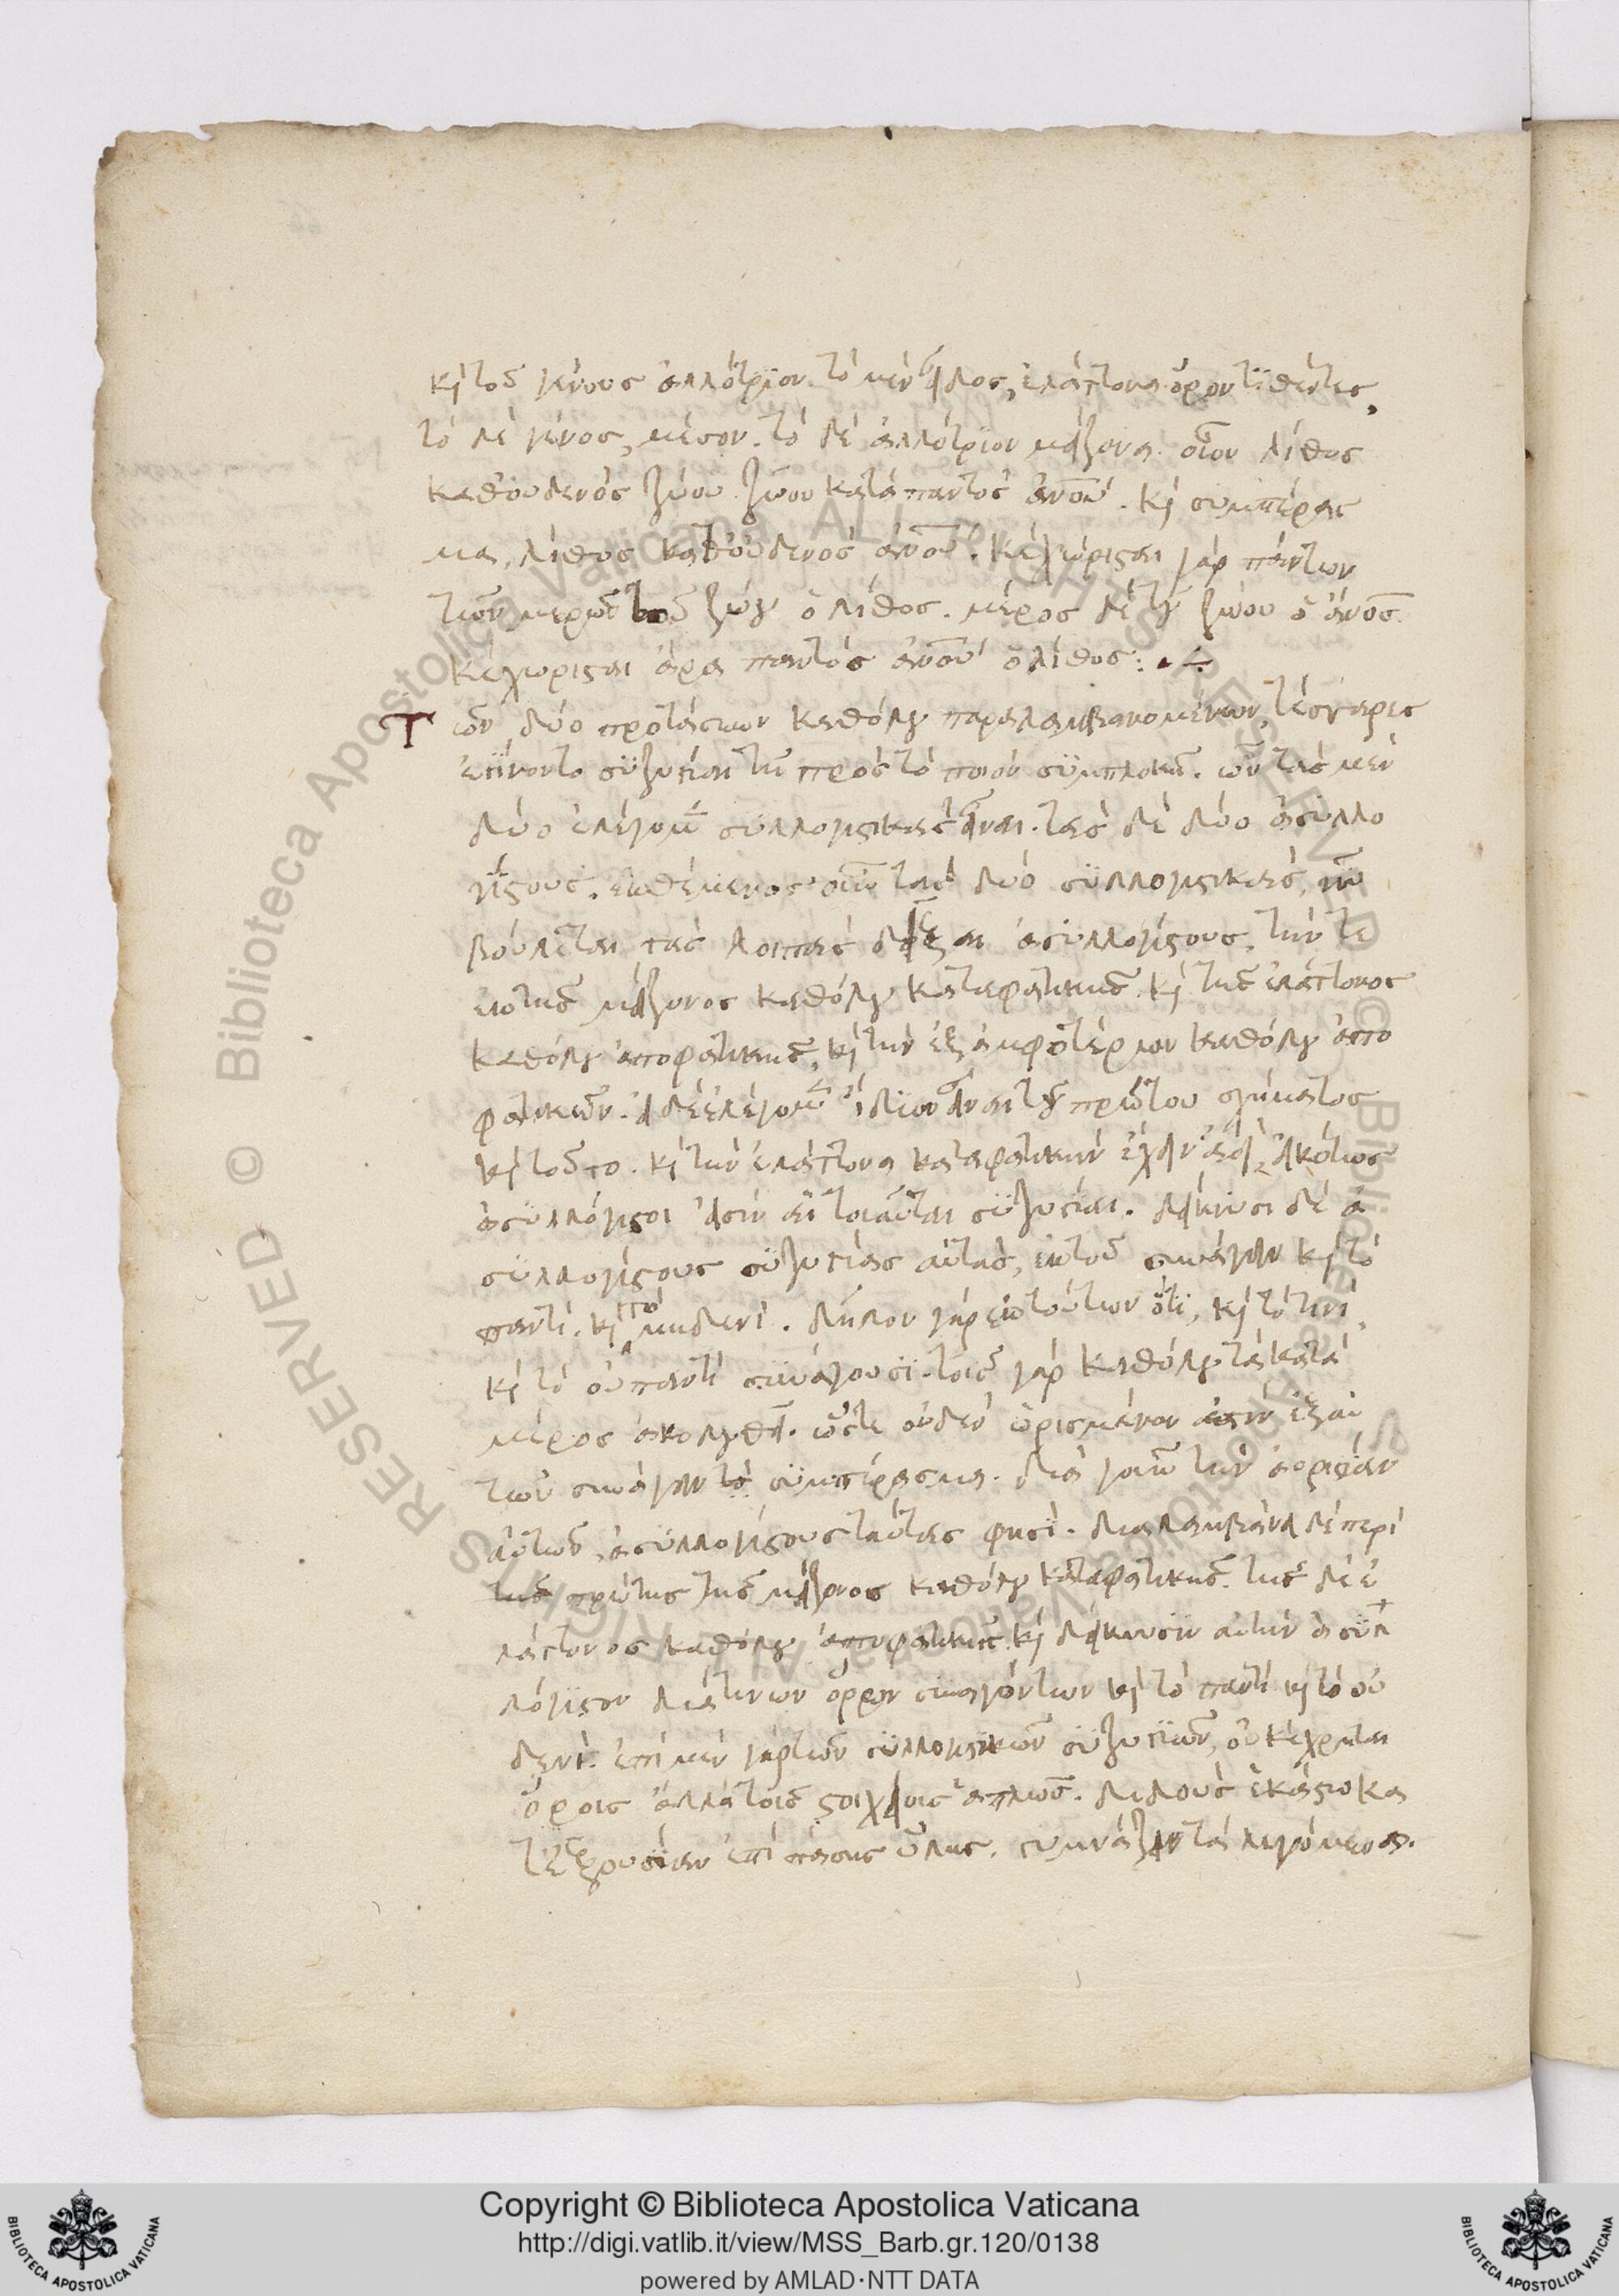 κὶ τοῦ γένους ἀλλότριον. τὸ μὲν εἶδος, ἐλάττονα ὅρον τϊθέντες,
τὸ δὲ γένος, μέσον. τὸ δὲ ἀλλότριον μείζονα. οἷον λίθος
καθ' οὐδενὸς ζώου. ζῶον κατὰ παντὸς ἀνου. κὶ συμπέρας
μα, λίθος κατ' οὐδενὸς ἀνου. κεχώρισται γὰρ πάντων
τῶν μερῶν τοῦ ζώου ὁ λίθος. μέρος δὲ τοῦ ζώου ὁ ἄνος.
κεχώρισται ἄρα παντὸς ἀνου ὁ λίθος:
Τ ῶν δύο προτάσεων καθόλου παραλαμβανομένων, τέσσαρις
ἐγίνοντο συζυγίαι τῆ πρὸς τὸ ποιὸν συμπλοκῆ. ὧν τὰς μὲν
δύο ἐλέγομεν συλλογιστικὰς εἶναι. τὰς δὲ δύο ἀσυλλο
γίστους. ἐκθέμενος οὖν τὰς δύο συλλογιστικὰς, νῦν
βούλεται τὰς λοιπὰς δεῖξαι ἀσυλλογίστους, τήν τε
ἐκ τῆς μείζονος καθόλου καταφατικῆς κὶ τῆς ἐλάττονος
καθόλου ἀποφατικῆς, κὶ τὴν ἐξ ἀμφοτέρων καθόλου ἀπο
φατικῶν. εἰ δὲ ἐλέγομεν ἴδιον εἶναι τοῦ πρώτου σχήματος
κὶ τοῦτο. κὶ τὴν ἐλάττονα καταφατικὴν ἔχειν ἀεὶ, εἰκότως
ἀσυλλόγιστοι εἰσὶν αἱ τοιαῦται συζυγίαι. δείκνυσι δὲ ἀ
συλλογίστους συζυγίας αὐτὰς, ἐκ τοῦ συνάγειν κὶ τὸ
παντὶ. κὶ τὸ μηδενὶ. δῆλον γὰρ ἐκ τούτων ὅτι, κὶ τὸ τινὶ,
κὶ τὸ οὐ παντὶ συνάγουσι. τοῖς γὰρ καθόλου τὰ κατὰ
μέρος ἀκολουθεῖ. ὥστε οὐδὲν ὡρισμένον ἐστὶν ἐξ αὐ
τῶν συνάγειν τὸ συμπέρασμα. διὰ γοῦν τὴν ἀοριστίαν
αὐτῶν, ἀσυλλογίστους ταύτας φησὶ. διαλαμβάνει δὲ περὶ
τῆς πρώτης τῆς μείζονος καθόλου καταφατικῆς. τῆς δὲ ἐ
λάττονος καθόλου ἀποφατικῆς κὶ δείκνυσιν αὐτὴν ἀσύλ
λόγιστον διά τινων ὅρων συναγόντων κὶ τὸ παντὶ κὶ τὸ οὐ
δενὶ. ἐπὶ μὲν γὰρ τῶν συλλογιστικῶν συζυγιῶν, οὐ κέχρηται
ὅροις ἀλλὰ τοῖς στοιχείοις ἁπλῶς. διδοὺς ἑκάστω κα
τ' ἐξουσίαν ἐπὶ πάσης ὕλης, γυμνάζειν τὰ λεγόμενα.
Copyright © Biblioteca Apostolica Vaticana
http://digi.vatlib.it/view/MSS_Barb.gr.120/0138
powered by AMLAD·NTT DATA